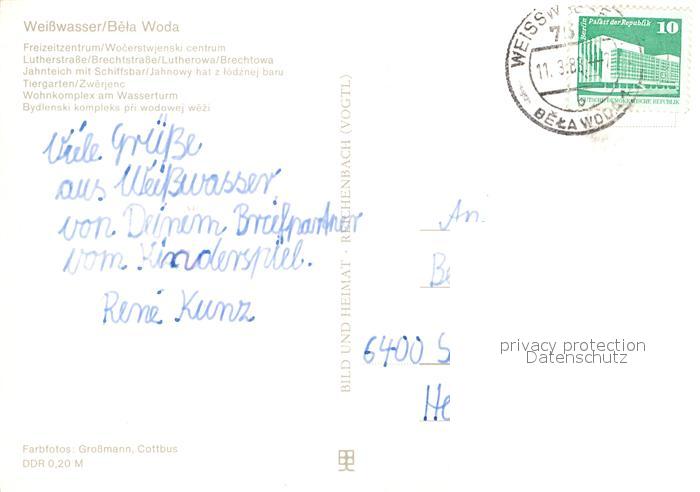 Weißwasser/Běła Woda
Freizeitzentrum/Wočerstwjenski centrum
Lutherstraße/Brechtstraße/Lutherowa/Brechtowa
Jahnteich mit Schiffsbar/Jahnowy hat z łódźnej baru
Tiergarten/Zwěrjenc
Wohnkomplex am Wasserturm
Bydlenski kompleks při wodowej wěži
Viele Grüße
aus Weißwasser
von Deinem Briefpartner
vom Kinderspiel.
René Kunz
Farbfotos: Großmann, Cottbus
DDR 0,20 M
BILD UND HEIMAT · REICHENBACH (VOGTL)
WEISSW
75
11. 3.88
BĚŁA WODA
Berlin Palast der Republik
10
DEUTSCHE DEMOKRATISCHE REPUBLIK
An.
Be
6400 S
He
privacy protection
Datenschutz